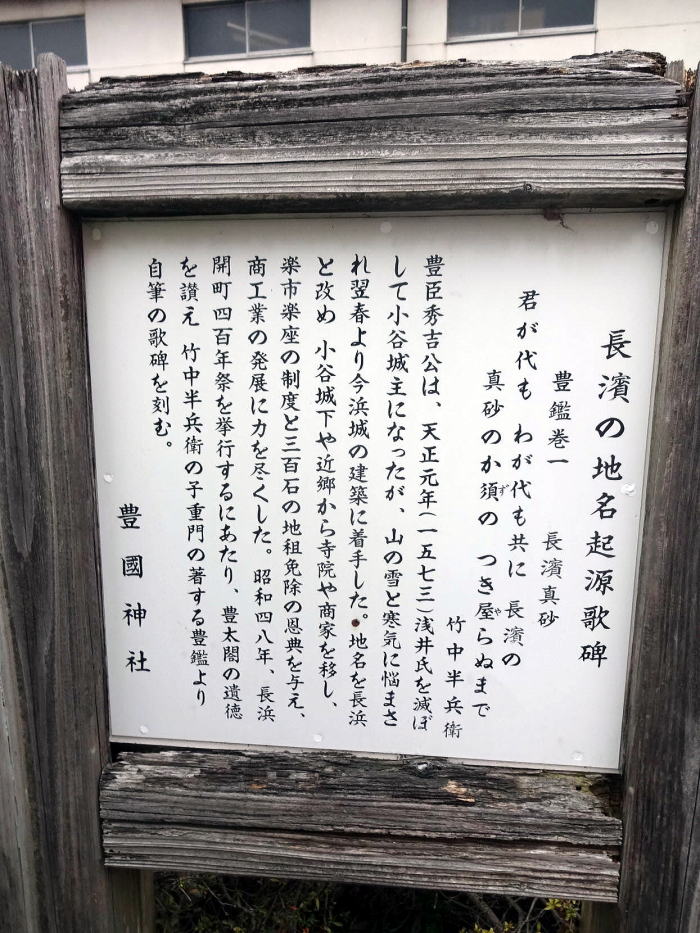 長濱の地名起源歌碑
豊鑑巻一　長濱真砂
君が代も　わが代も共に　長濱の
真砂のか須の　つき屋らぬまで
ず
や
竹中半兵衛
豊臣秀吉公は、天正元年(一五七三)浅井氏を滅ぼ
して小谷城主になったが、山の雪と寒気に悩まさ
れ翌春より今浜城の建築に着手した。地名を長浜
と改め　小谷城下や近郷から寺院や商家を移し、
楽市楽座の制度と三百石の地租免除の恩典を与え、
商工業の発展に力を尽くした。昭和四八年、長浜
開町四百年祭を挙行するにあたり、豊太閤の遺徳
を讃え　竹中半兵衛の子重門の著する豊鑑より
自筆の歌碑を刻む。
豊國神社